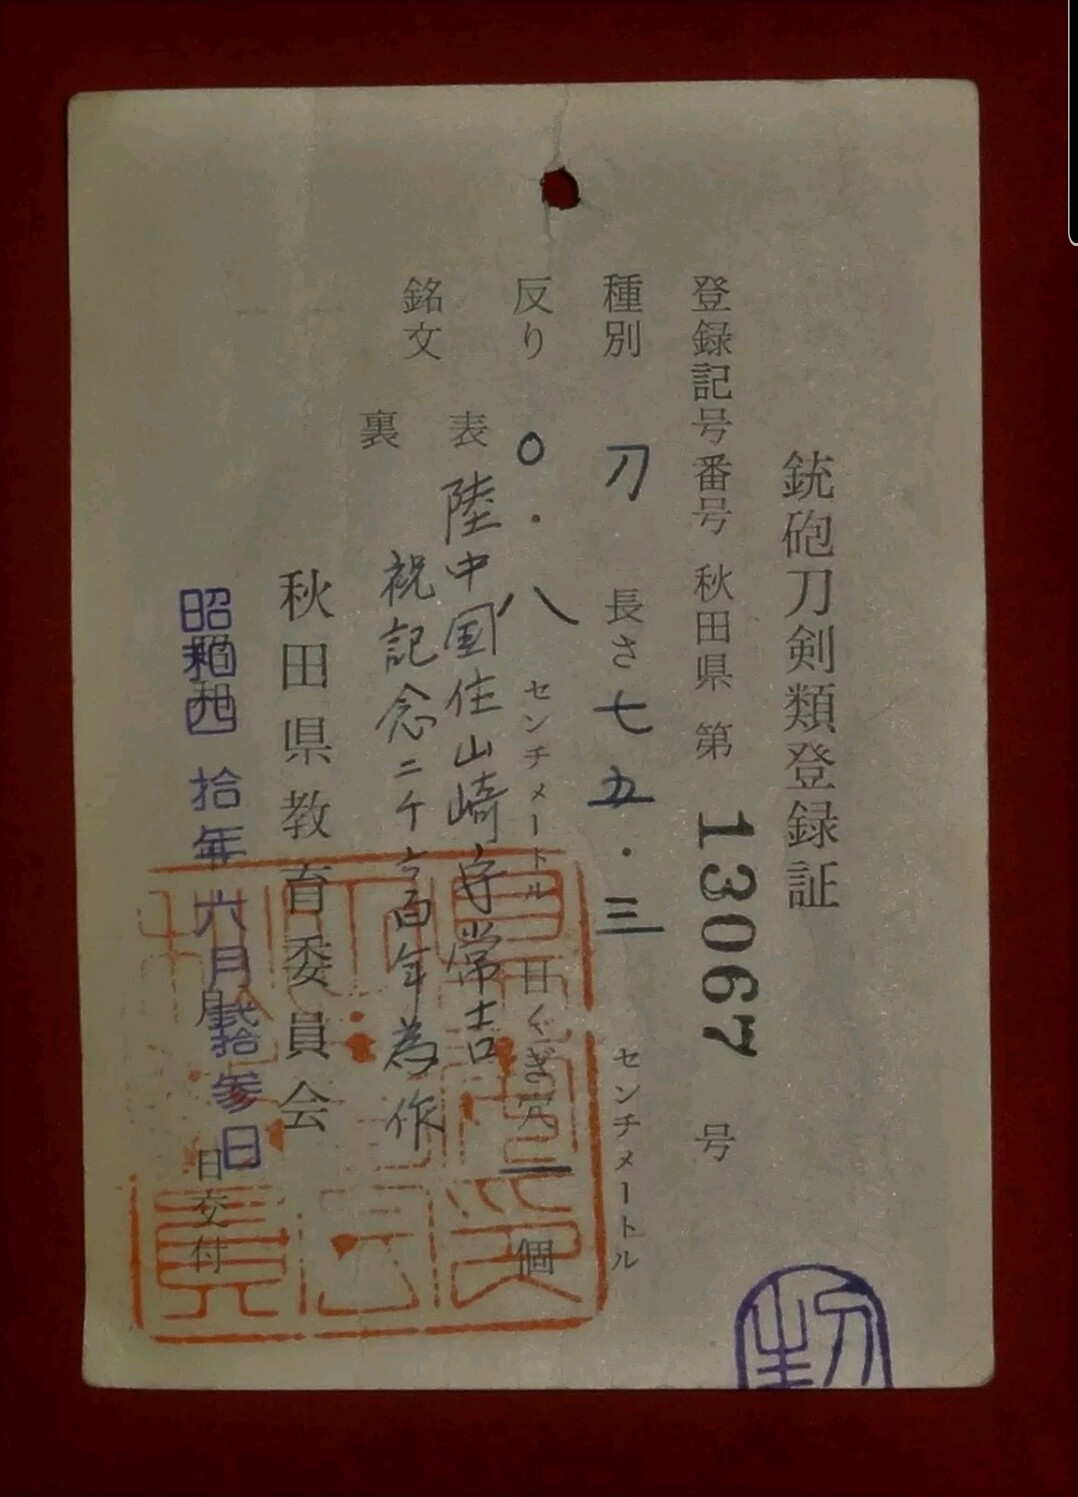 銃砲刀剣類登録証
登録記号番号 秋田県 第 13067 号
種別 刀 長さ 七五・三 センチメートル
反り 〇・八 センチメートル 目くぎ穴 一 個
銘文
表 陸中国住山崎 常吉
裏 祝記念 百年為作
秋田県教育委員会
昭和四拾年六月弐拾参日
月 日交付